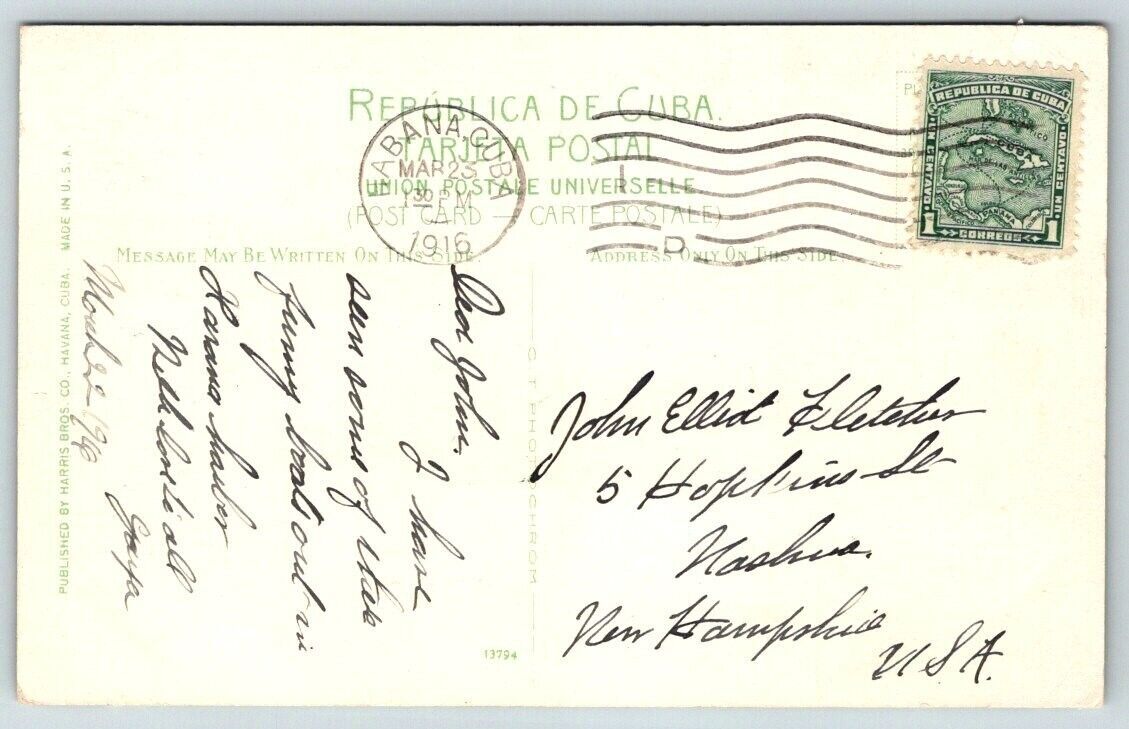 REPÚBLICA DE CUBA.
TARJETA POSTAL
UNION POSTALE UNIVERSELLE
(POST CARD — CARTE POSTALE)
MESSAGE MAY BE WRITTEN ON THIS SIDE.
ADDRESS ONLY ON THIS SIDE.
HABANA, CUBA
MAR 23
1 30 PM
1916
D
REPUBLICA DE CUBA
UN CENTAVO
UN CENTAVO
CUBA
PANAMA
1 CORREOS 1
Dear John,
I have
seen some of these
funny boats out in
Havana harbor
With love to all
Grandpa
March 22 1916
John Elliot Fletcher
5 Hopkins St
Nashua,
New Hampshire
USA.
C T PHOTOCHROM
13794
PUBLISHED BY HARRIS BROS. CO., HAVANA, CUBA. MADE IN U. S. A.